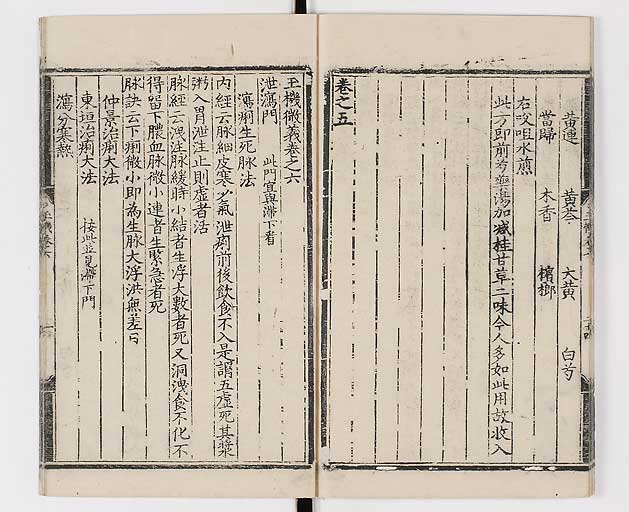 黃連 黃芩 大黃 白芍
當歸 木香 檳榔
右㕮咀水煎
此方即前芍藥湯加減桂甘草二味今人多如此用故收入
卷之五
玉機微義卷之六
泄瀉門 此門宜與滯下看
瀉痢生死脉法
內經云脉細皮寒少氣泄痢前後飲食不入是謂五虛死其漿
粥入胃泄注止則虛者活
脉經云洩注脉緩時小結者生浮大數者死又洞洩食不化不
得留下膿血脉微小連者生緊急者死
脉訣云下痢微小即為生脉大浮洪無差日
仲景治痢大法
東垣治痢大法 按此並見滯下門
瀉分寒熱